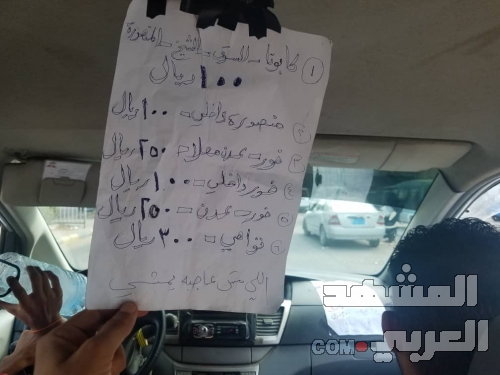 ١ كابوتا - السوق - الشيخ - المنصورة
١٠٠ ريال
٢ منصوره داخلي = ١٠٠ ريال
٣ خور - عدن معلا = ٢٥٠ ريال
٤ خور داخلي = ١٠٠ ريال
٥ خور - عدن = ٢٥٠ ريال
٦ تواهي = ٣٠٠ ريال
اللي مش عاجبه يمشي
المشهد
العربي
.COM